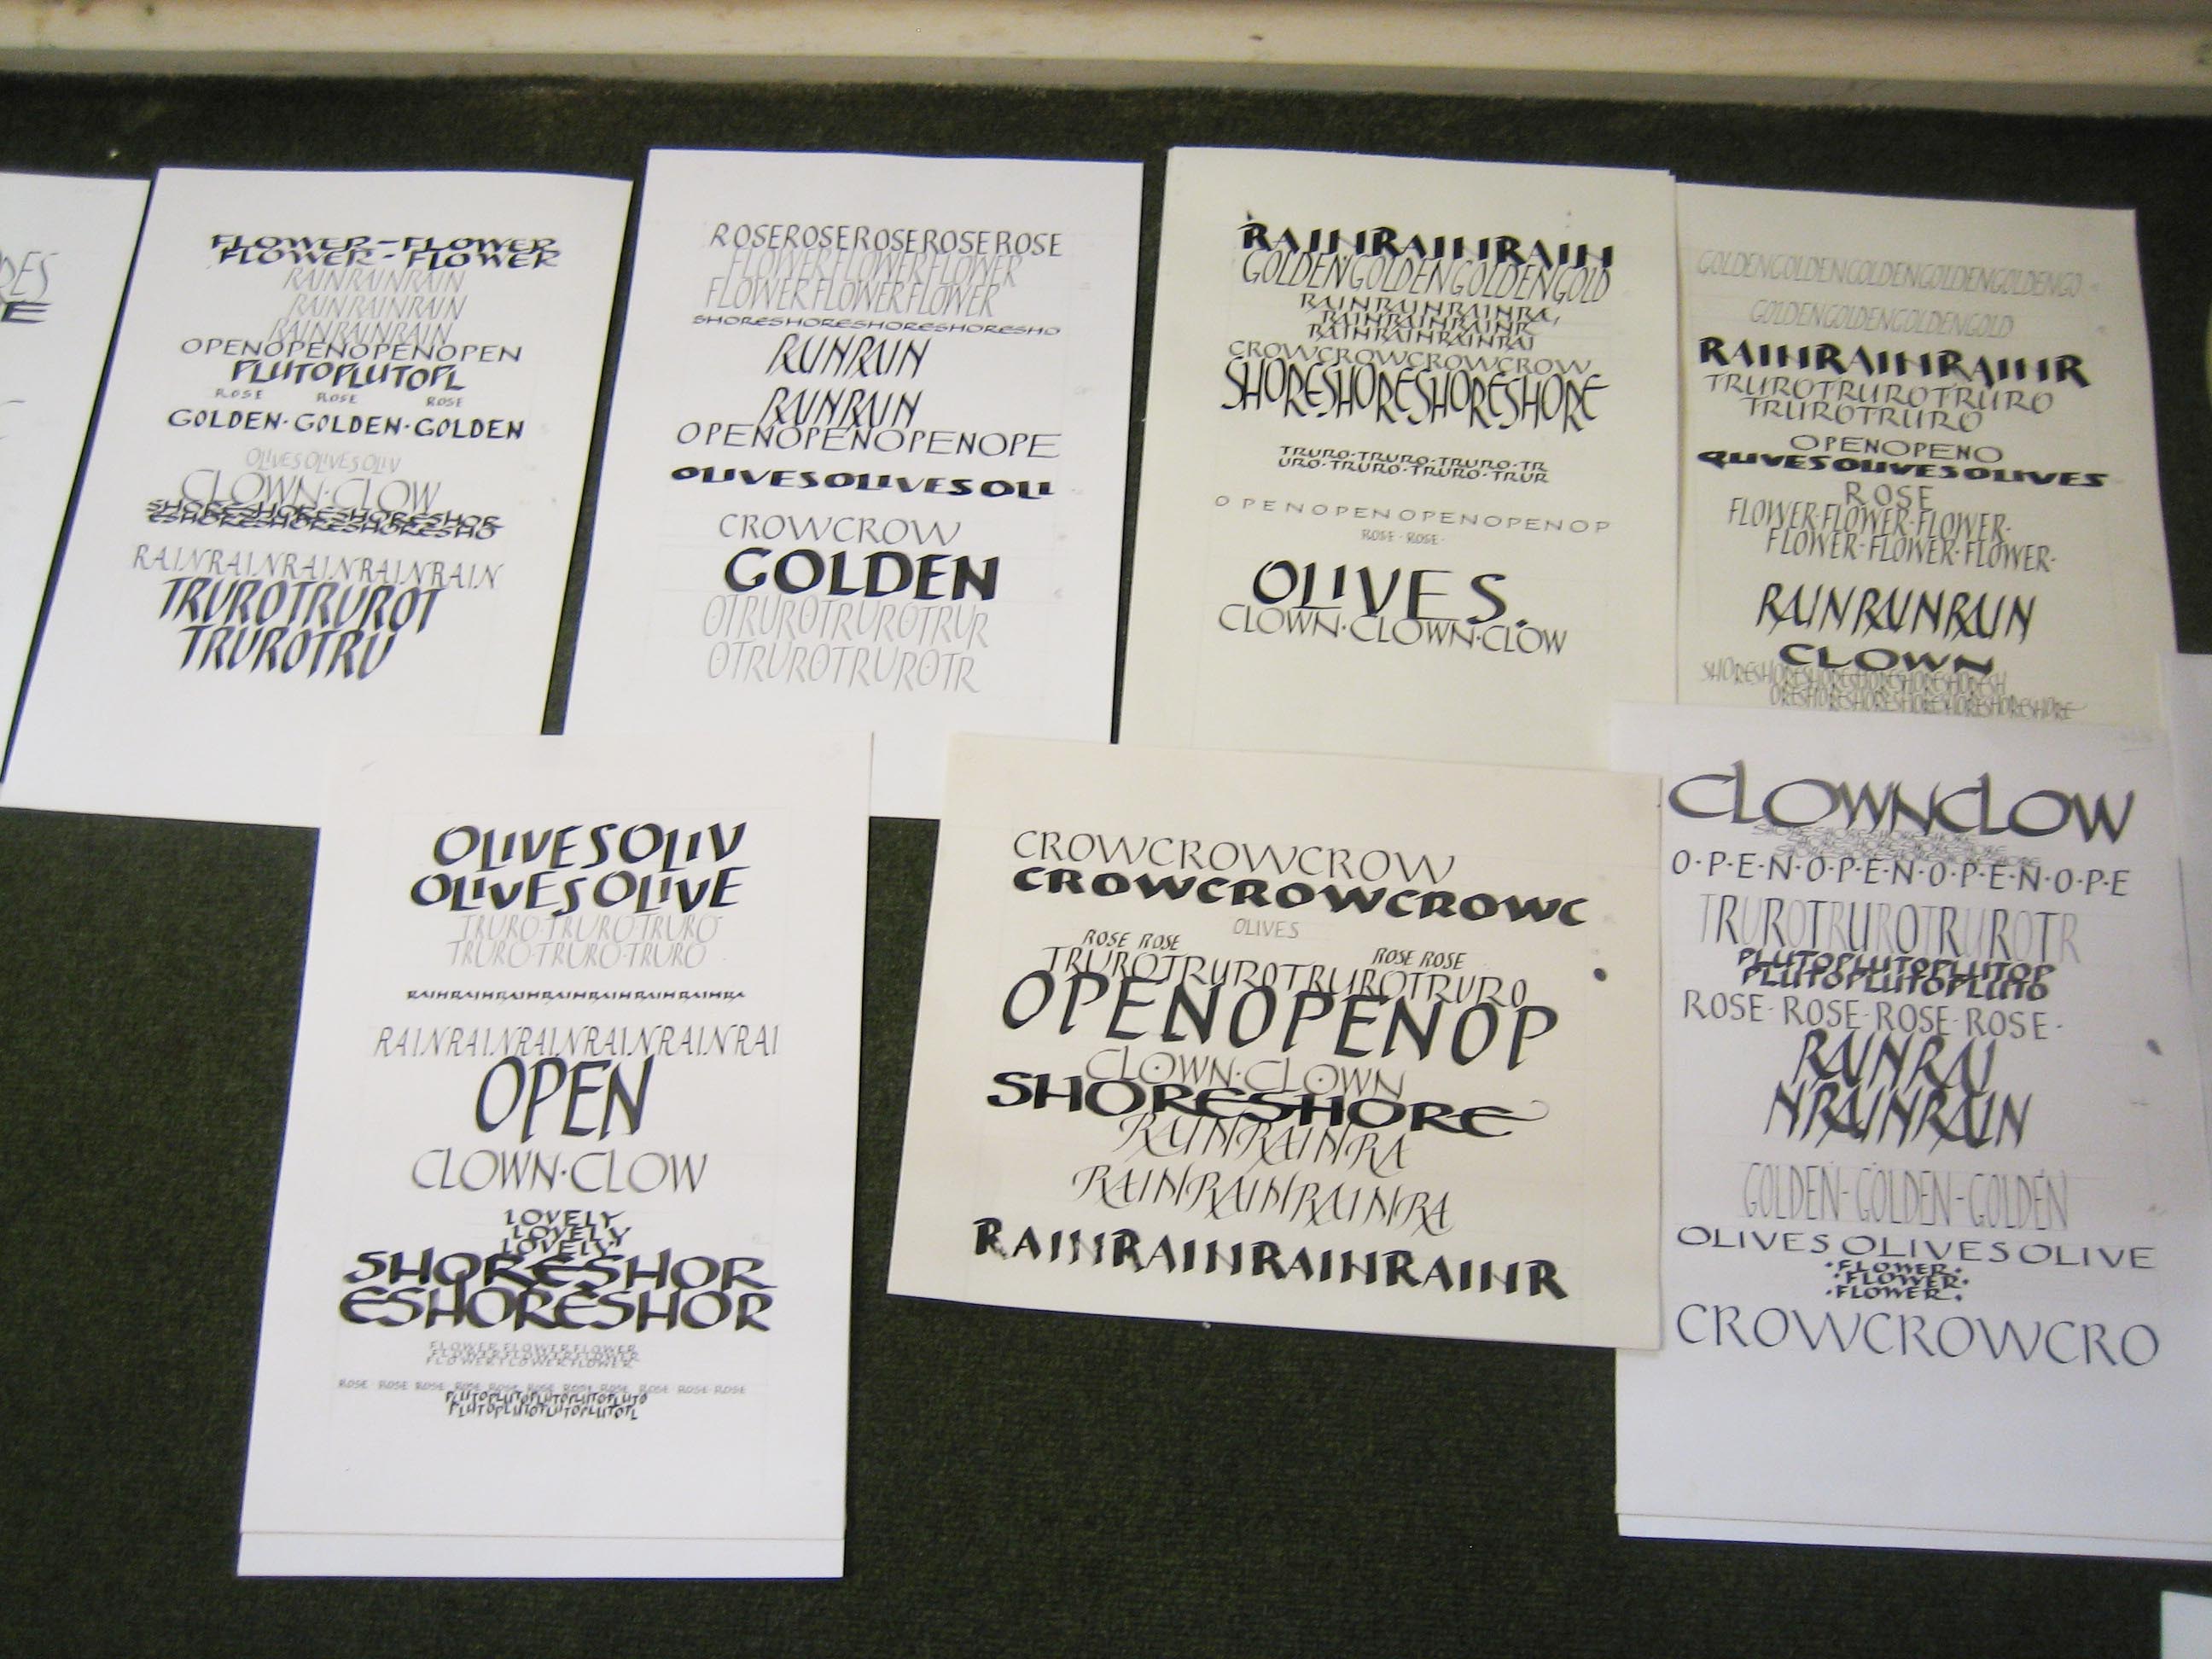 RES
E
FLOWER-FLOWER
FLOWER-FLOWER
RAINRAINRAIN
RAINRAINRAIN
RAINRAINRAIN
OPENOPENOPENOPEN
PLUTOPLUTOPL
ROSE ROSE ROSE
GOLDEN·GOLDEN·GOLDEN
OLIVESOLIVESOLIV
CLOWN·CLOW
SHORESHORESHORESHOR
ESHORESHORESHORESHO
RAINRAINRAINRAINRAIN
TRUROTRUROT
TRUROTRU
ROSEROSEROSEROSEROSE
FLOWERFLOWERFLOWER
FLOWERFLOWERFLOWER
SHORESHORESHORESHORESHO
RAINRAIN
RAINRAIN
OPENOPENOPENOPE
OLIVESOLIVESOLI
CROWCROW
GOLDEN
OTRUROTRUROTRUR
OTRUROTRUROTR
RAINRAINRAIN
GOLDENGOLDENGOLDENGOLD
RAINRAINRAINRA,
RAINRAINRAINR
RAINRAINRAINRAI
CROWCROWCROWCROW
SHORESHORESHORESHORE
TRURO·TRURO·TRURO·TR
URO·TRURO·TRURO·TRUR
OPENOPENOPENOPENOP
ROSE·ROSE·
OLIVES.
CLOWN·CLOWN·CLOW
GOLDENGOLDENGOLDENGOLDENGOLDENGO
GOLDENGOLDENGOLDENGOLD
RAINRAINRAINR
TRUROTRUROTRURO
TRUROTRURO
OPENOPENO
OLIVESOLIVESOLIVES
ROSE
FLOWER·FLOWER·FLOWER·
FLOWER·FLOWER·FLOWER·
RAINRAINRAIN
CLOWN
SHORESHORESHORESHORESHORESH
ORESHORESHORESHORESHORESHORE
OLIVESOLIV
OLIVESOLIVE
TRURO·TRURO·TRURO
TRURO·TRURO·TRURO
RAINRAINRAINRAINRAINRAINRAINRA
RAINRAINRAINRAINRAINRAI
OPEN
CLOWN·CLOW
LOVELY
LOVELY
LOVELY·
SHORESHOR
ESHORESHOR
FLOWERFLOWERFLOWER
FLOWERFLOWERFLOWER
FLOWERFLOWERFLOWER
ROSE ROSE ROSE ROSE ROSE ROSE ROSE ROSE ROSE ROSE ROSE
PLUTOPLUTOPLUTOPLUTOPLUTO
PLUTOPLUTOPLUTOPLUTOPL
CROWCROWCROW
CROWCROWCROWC
OLIVES
ROSE ROSE ROSE ROSE
TRUROTRUROTRUROTRURO
OPENOPENOP
CLOWN·CLOWN
SHORESHORE
RAINRAINRA
RAINRAINRAINRA
RAINRAINRAINRAINR
CLOWNCLOW
O·P·E·N·O·P·E·N·O·P·E·N·O·P·E
TRUROTRUROTRUROTR
PLUTOPLUTOPLUTOP
PLUTOPLUTOPLUTO
ROSE·ROSE·ROSE·ROSE·
RAINRAI
NRAINRAIN
GOLDEN-GOLDEN-GOLDEN
OLIVESOLIVESOLIVE
·FLOWER·
·FLOWER·
·FLOWER·
CROWCROWCRO